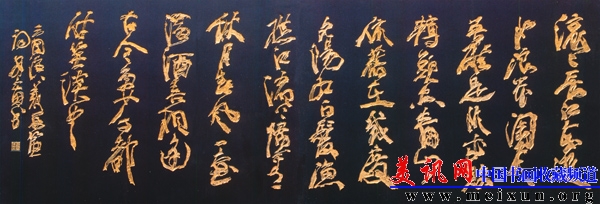 滚滚长江东逝
水浪花淘尽
英雄是非成败
转头空青山
依旧在几度
夕阳红白发渔
樵江渚上惯看
秋月春风一壶
浊酒喜相逢
古今多少事都
付笑谈中
三国演义
词
美讯网
中国书画收藏频道
www.meixun.org